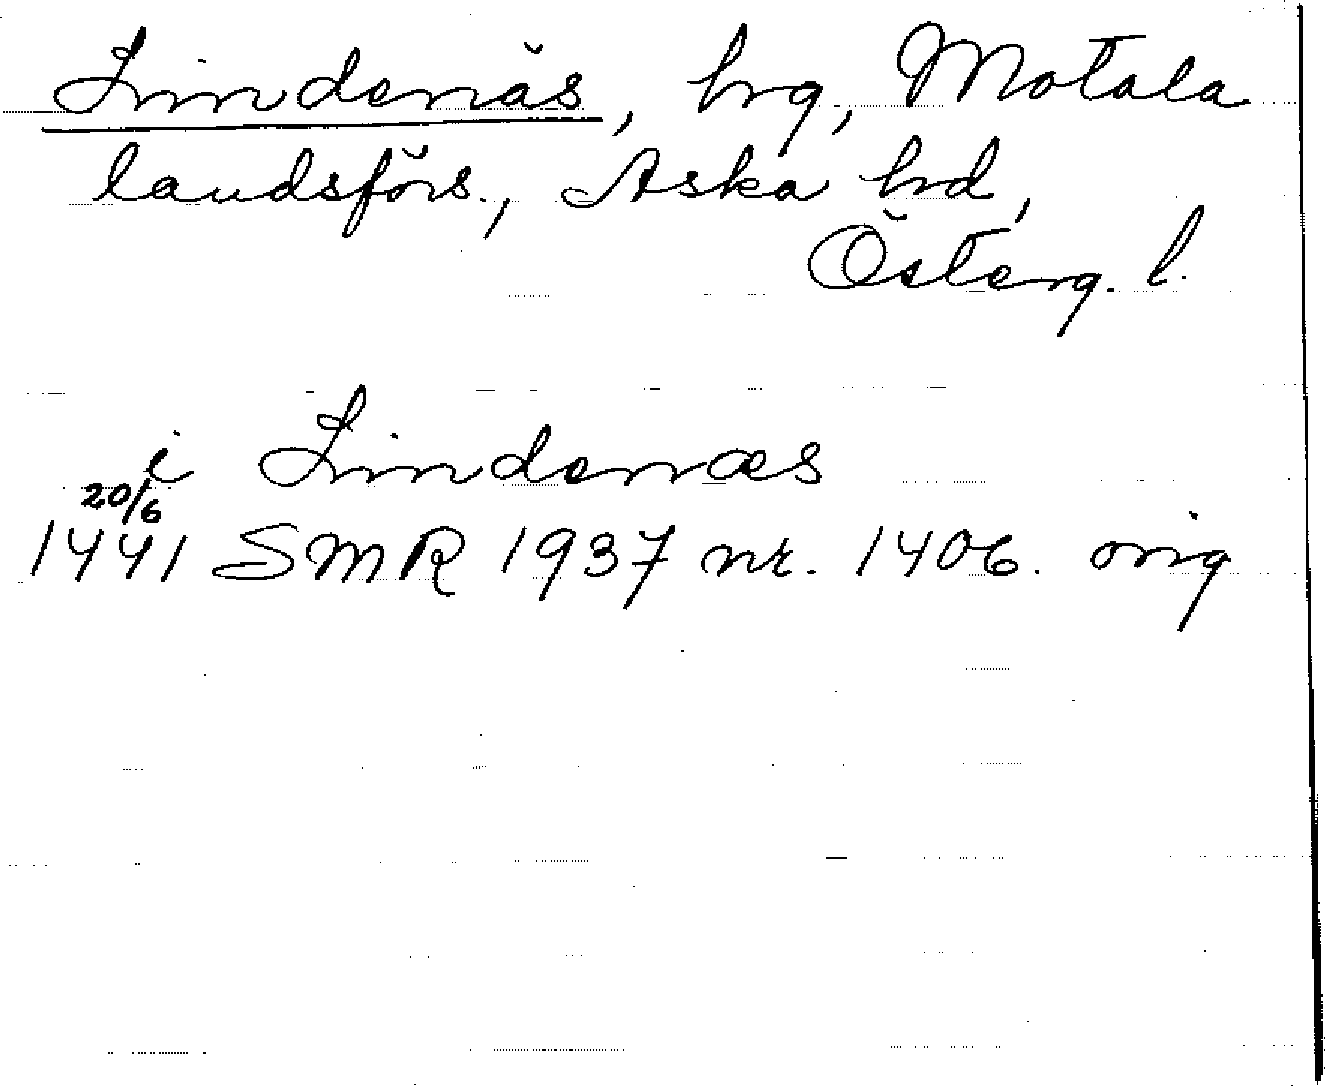 Lindenäs, hrg, Motala
landsförs., Aska hrd,
Österg. l.
i Lindenæs
20/6
1441 SMR 1937 nr. 1406. orig